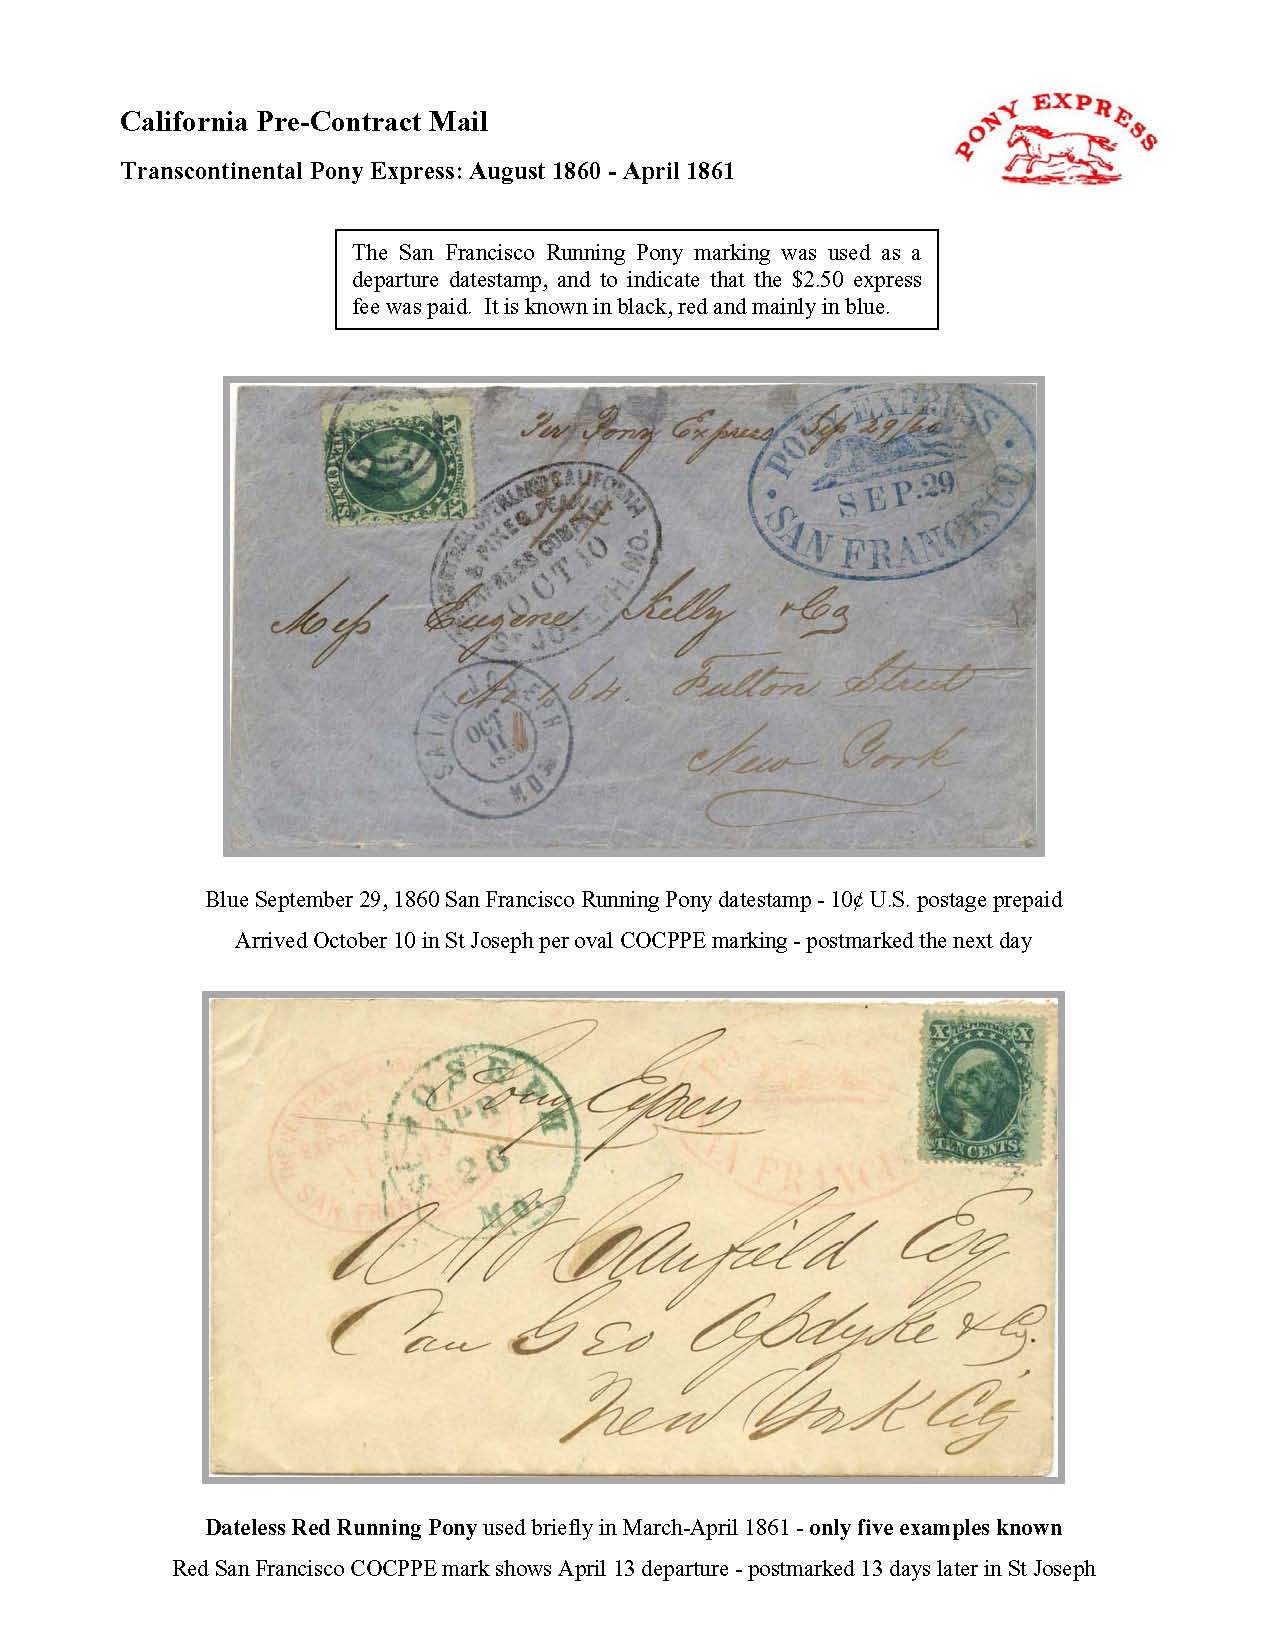 California Pre-Contract Mail
PONY EXPRESS
Transcontinental Pony Express: August 1860 - April 1861
The San Francisco Running Pony marking was used as a
departure datestamp, and to indicate that the $2.50 express
fee was paid. It is known in black, red and mainly in blue.
Per Pony Express Sep 29/60
PONY EXPRESS
SEP. 29
SAN FRANCISCO
CENTRAL OVERLAND CALIFORNIA
& PIKES PEAK
EXPRESS COMPANY
OCT 10
ST JOSEPH. MO.
Mess Eugene Kelly & Co
No 164. Fulton Street
New York
SAINT JOSEPH
OCT
11
MO
Blue September 29, 1860 San Francisco Running Pony datestamp - 10¢ U.S. postage prepaid
Arrived October 10 in St Joseph per oval COCPPE marking - postmarked the next day
Pony Express
JOSEPH
APR
26
Mo.
SAN FRAN
AN FRANCIS
X U.S. POSTAGE X
TEN CENTS
Canfield Esq
Care Geo Opdyke & Co.
New York City
Dateless Red Running Pony used briefly in March-April 1861 - only five examples known
Red San Francisco COCPPE mark shows April 13 departure - postmarked 13 days later in St Joseph